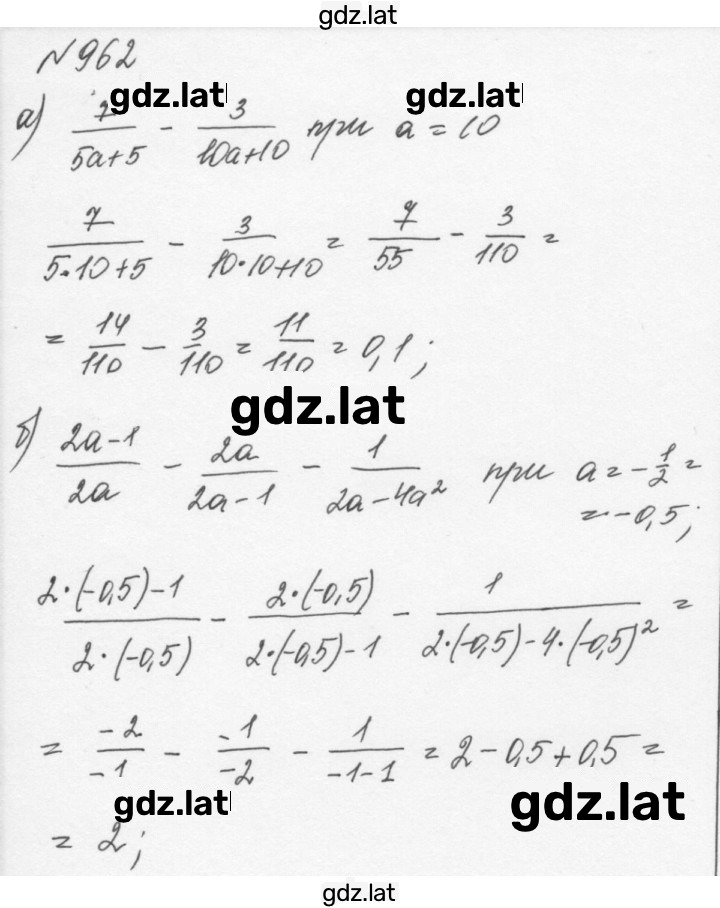 gdz.lat
№962
gdz.lat gdz.lat
а) 7/(5a+5) - 3/(10a+10) при a = 10
7/(5·10+5) - 3/(10·10+10) = 7/55 - 3/110 =
= 14/110 - 3/110 = 11/110 = 0,1;
gdz.lat
б) (2a-1)/2a - 2a/(2a-1) - 1/(2a-4a²) при a = -1/2 =
= -0,5;
(2·(-0,5)-1)/(2·(-0,5)) - (2·(-0,5))/(2·(-0,5)-1) - 1/(2·(-0,5)-4·(-0,5)²) =
= -2/-1 - -1/-2 - 1/(-1-1) = 2-0,5+0,5 =
gdz.lat gdz.lat
= 2;
gdz.lat